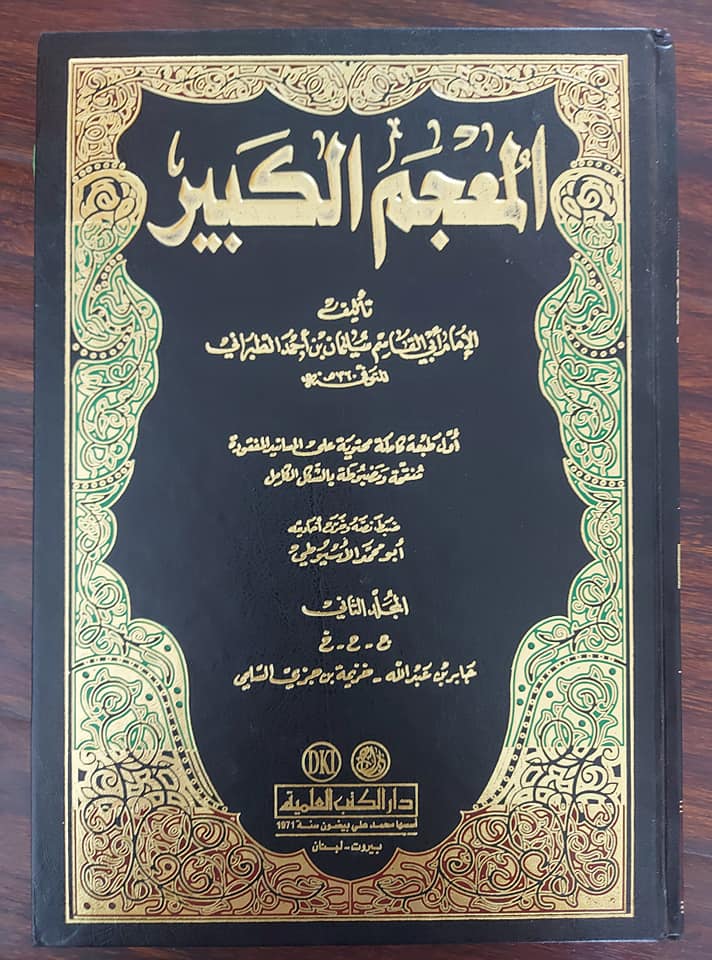 المعجم الكبير
تأليف
الإمام أبي القاسم سليمان بن أحمد الطبراني
المتوفى ٣٦٠ هـ
أول طبعة كاملة محتوية على المسانيد المفقودة
منقحة ومضبوطة بالشكل الكامل
ضبط نصه وخرج أحاديثه
أبو محمد الأسيوطي
المجلد الثاني
ج - ح - خ
جابر بن عبد الله - خزيمة بن جزي السلمي
DKI
دار الكتب العلمية
أسسها محمد علي بيضون سنة 1971
بيروت - لبنان